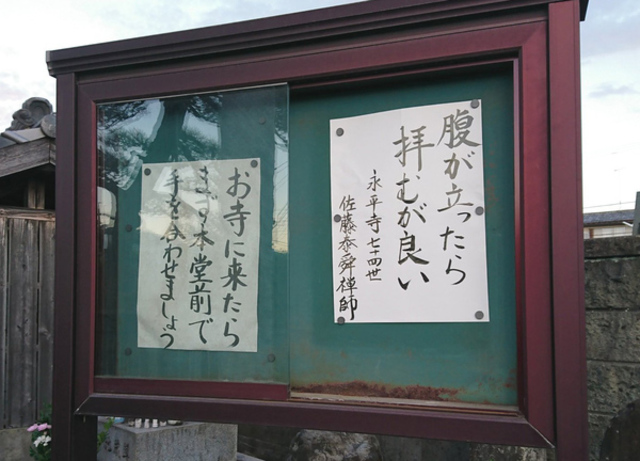 腹が立ったら
拝むが良い
永平寺七十四世
佐藤泰舜禅師
お寺に来たら
まず本堂前で
手を合わせましょう